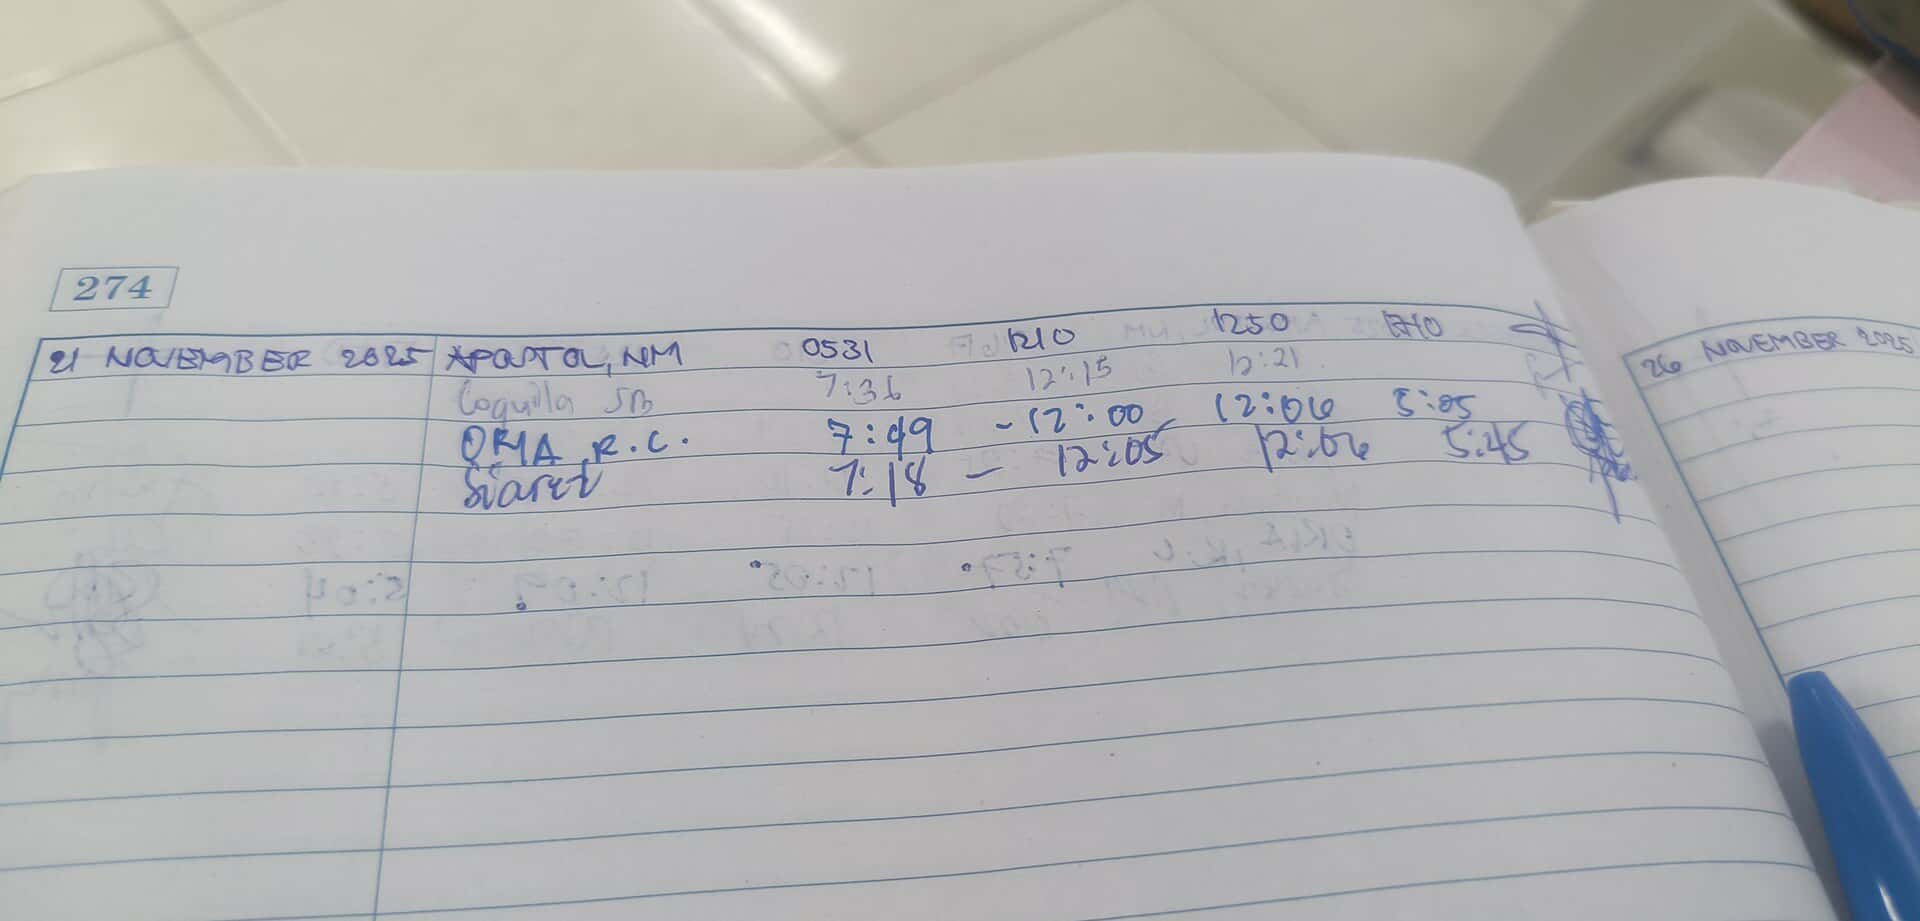 274
21 NOVEMBER 2025 APOSTOL, NM 0531 1210 1250 1710
Coquilla JM 7:36 12:15 12:21
ORIA, R.C. 7:49 - 12:00 12:06 5:05
7:18 - 12:05 12:06 5:45
26 NOVEMBER 2025